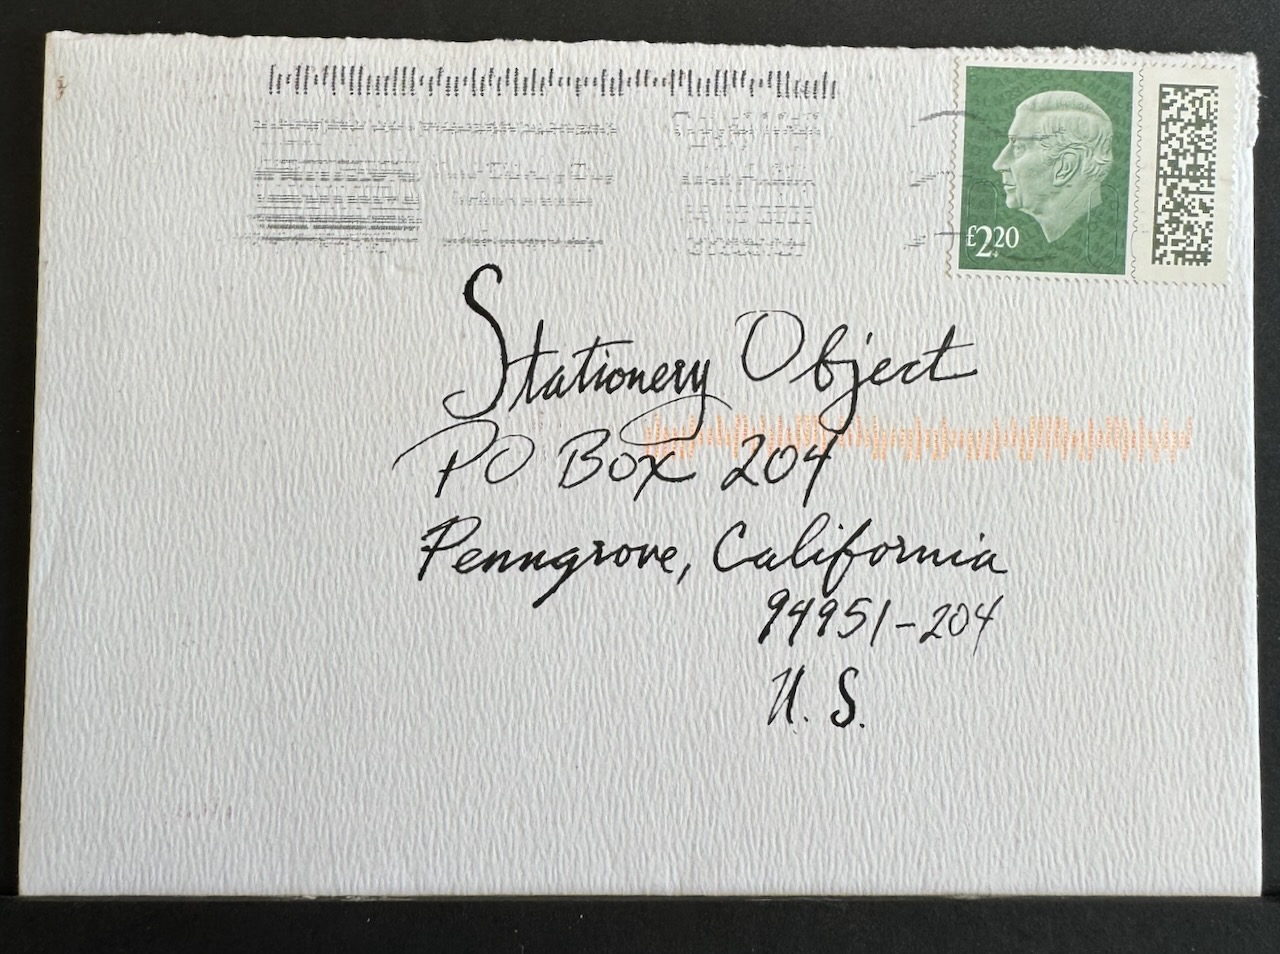 £2.20
Stationery Object
PO Box 204
Penngrove, California
94951-204
U. S.